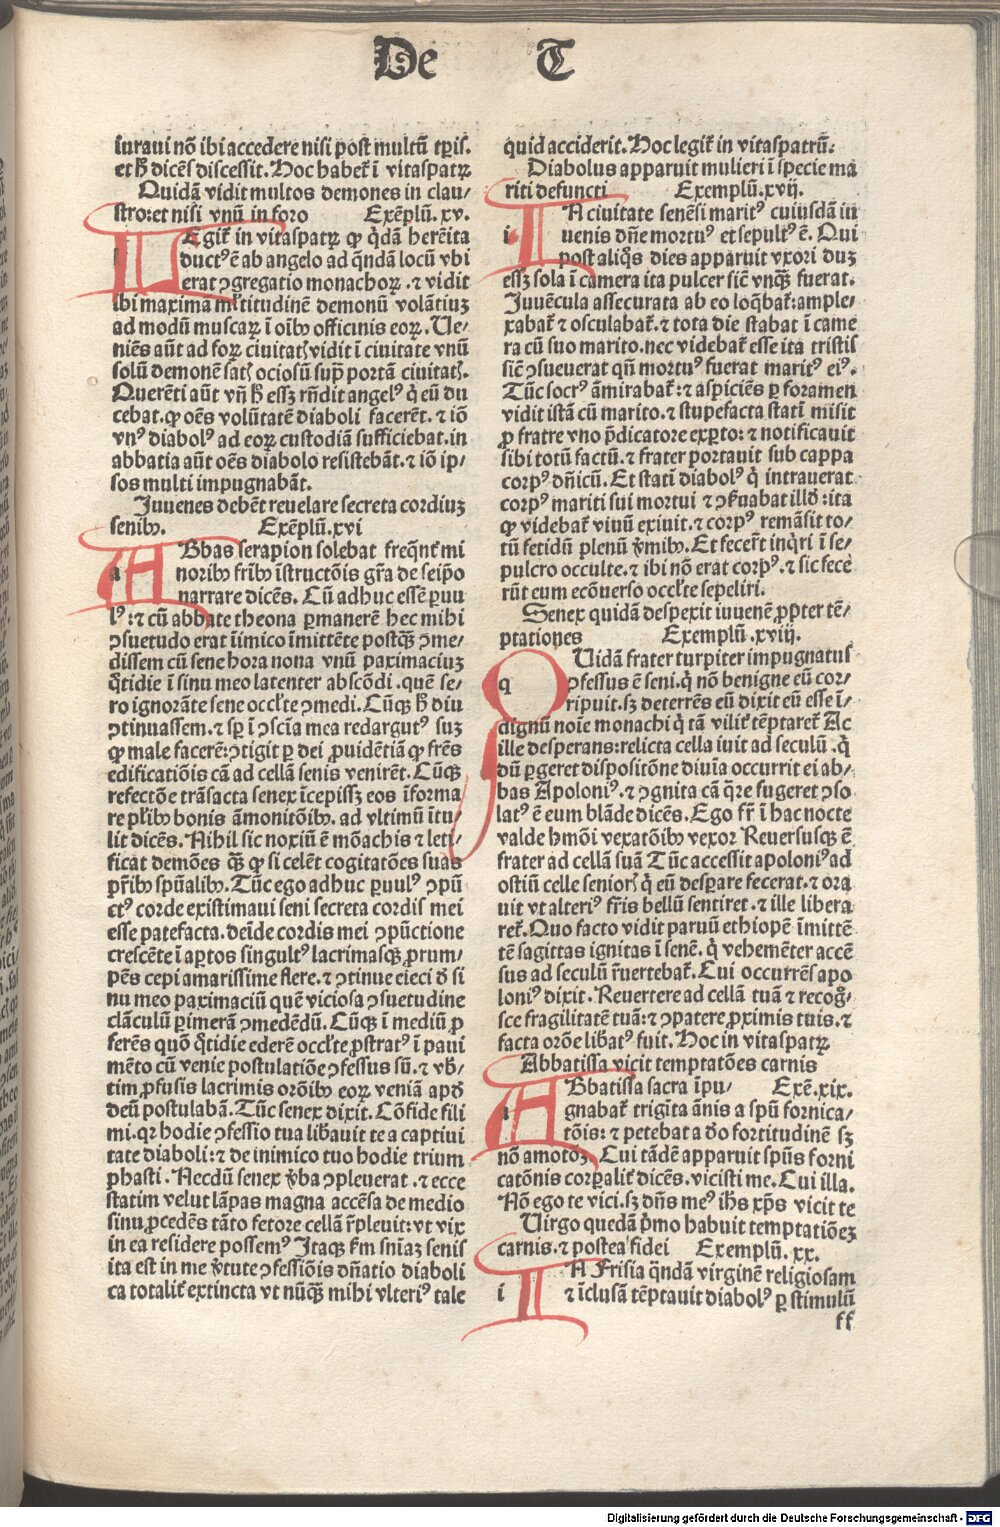 De T
iuraui nō ibi accedere nisi post multū tꝑis.
et ħ dicēs discessit. Hoc habet̄ ī vitaspatꝝ
Quidā vidit multos demones in clau/
stro: et nisi vnū in foro Exēplū. xv.
LEgit̄ in vitaspatꝝ ꝙ q̄dā herēita
ductꝰ ē ab angelo ad q̄ndā locū vbi
erat ꝯgregatio monachoꝝ. ⁊ vidit
ibi maxima mltitudinē demonū volātiuꝫ
ad modū muscaꝝ ī oībꝰ officinis eoꝝ. Ue/
niēs aūt ad foꝝ ciuitatꝭ vidit ī ciuitate vnū
solū demonē satꝭ ociosū supꝑ portā ciuitatꝭ.
Querēti aūt vn̄ ħ essꝫ rn̄dit angelꝰ q̄ eū du
cebat. ꝙ oēs volūtatē diaboli facerēt. ⁊ iō
vnꝰ diabolꝰ ad eoꝝ custodiā sufficiebat. in
abbatia aūt oēs diabolo resistebāt. ⁊ iō ip/
sos multi impugnabāt.
Juuenes debēt reuelare secreta cordiuꝫ
senibꝰ. Exēplū. xvi
a ABbas serapion solebat freq̄nt̄ mi
noribꝰ fr̄ibꝰ īstructōis gr̄a de seip̄o
narrare dicēs. Cū adhuc essē ꝑuu
lꝰ: ⁊ cū abbate theona ꝑmanerē hec mihi
ꝯsuetudo erat īimico īmittēte postqꝫ̄ ꝯme/
dissem cū sene hora nona vnū paximaciuꝫ
q̄tidie ī sinu meo latenter abscōdi. quē se/
ro ignorāte sene occl̄te ꝯmedi. Cūqꝫ ħ diu
ꝯtinuassem. ⁊ sꝑ ī ꝯscīa mea redargutꝰ suꝫ
ꝙ male facerē: ꝯtigit ꝑ dei ꝓuidētiā ꝙ fr̄es
edificatiōis cā ad cellā senis venirēt. Cūqꝫ
refectōe trāsacta senex īcepissꝫ eos īforma
re pl̄ibꝰ bonis āmonitōibꝰ. ad vltimū ītu/
lit dicēs. Nihil sic noxiū ē mōachis ⁊ leti/
ficat demōes qꝫ̄ ꝙ si celēt cogitatōes suas
pr̄ibꝰ spūalibꝰ. Tūc ego adhuc ꝑuulꝰ ꝯpū
ctꝰ corde existimaui seni secreta cordis mei
esse patefacta. deīde cordis mei ꝯpūctione
crescēte ī aꝑtos singultꝰ lacrimasqꝫ ꝓrum/
pēs cepi amarissime flere. ⁊ ꝯtinue eieci đ si
nu meo paximaciū quē viciosa ꝯsuetudine
clāculū ꝑimerā ꝯmedēdū. Cūqꝫ ī mediū ꝓ
ferēs quō q̄tidie ederē occl̄te ꝓstratꝰ ī paui
mēto cū venie postulatiōe ꝯfessus sū. ⁊ vb̄/
tim ꝓfusis lacrimis orōibꝰ eoꝝ veniā apđ
deū postulabā. Tūc senex dixit. Cōfide fili
mi. qr hodie ꝯfessio tua lib̄auit te a captiui
tate diaboli: ⁊ de inimico tuo hodie trium
phasti. Necdū senex v̄ba ꝯpleuerat. ⁊ ecce
statim velut lāpas magna accēsa de medio
sinu ꝓcedēs tāto fetore cellā r̄pleuit: vt vix
in ea residere possemꝰ Itaqꝫ fm sn̄iaꝫ senis
ita est in me v̄tute ꝯfessiōis dn̄atio diaboli
ca totalit̄ extincta vt nūqꝫ̄ mihi vlteriꝰ tale
quid acciderit. Hoc legit̄ in vitaspatrū.
Diabolus apparuit mulieri ī specie ma
riti defuncti Exemplū. xvij.
i IN ciuitate senēsi maritꝰ cuiusdā iu
uenis dn̄e mortuꝰ et sepultꝰ ē. Qui
post aliq̄s dies apparuit vxori duꝫ
essꝫ sola ī camera ita pulcer sic̄ vnqꝫ̄ fuerat.
Juuēcula assecurata ab eo loq̄bat̄: ample/
xabat̄ ⁊ osculabat̄. ⁊ tota die stabat ī came
ra cū suo marito. nec videbat̄ esse ita tristis
sic̄ ꝯsueuerat qn̄ mortuꝰ fuerat maritꝰ eiꝰ.
Tūc socrꝰ āmirabat̄: ⁊ aspiciēs ꝑ foramen
vidit istā cū marito. ⁊ stupefacta statī misit
ꝓ fratre vno p̄dicatore exꝑto: ⁊ notificauit
sibi totū factū. ⁊ frater portauit sub cappa
corpꝰ dn̄icū. Et statī diabolꝰ q̄ intrauerat
corpꝰ mariti sui mortui ⁊ ꝯſuabat illđ: ita
ꝙ videbat̄ viuū exiuit. ⁊ corpꝰ remāsit to/
tū fetidū plenū v̄mibꝰ. Et fecer̄t inq̄ri ī se/
pulcro occulte. ⁊ ibi nō erat corpꝰ. ⁊ sic fece
rūt eum ecōuerso occl̄te sepeliri.
Senex quidā despexit iuuenē ꝓpter tē/
ptationes Exemplū. xviij.
q QUidā frater turpiter impugnatus
ꝯfessus ē seni. q̄ nō benigne eū cor/
ripuit. sꝫ deterrēs eū dixit eū esse ī/
dignū noīe monachi q̄ tā vilit̄ tēptaret̄ Ac
ille desperans: relicta cella iuit ad seculū. q̄
dū ꝑgeret dispositōne diuīa occurrit ei ab/
bas Apoloniꝰ. ⁊ ꝯgnita cā q̄re fugeret ꝯso
latꝰ ē eum blāde dicēs. Ego fr̄ ī hac nocte
valde hmōi vexatōibꝰ vexor Reuersusqꝫ ē
frater ad cellā suā Tūc accessit apoloniꝰ ad
ostiū celle seniorꝭ q̄ eū desꝑare fecerat. ⁊ ora
uit vt alteriꝰ fr̄is bellū sentiret. ⁊ ille libera
ret̄. Quo facto vidit paruū ethiopē īmittē
tē sagittas ignitas ī senē. q̄ vehemēter accē
sus ad seculū r̄uertebat̄. Cui occurrēs apo
loniꝰ dixit. Reuertere ad cellā tuā ⁊ recoḡ/
sce fragilitatē tuā: ⁊ ꝯpatere ꝓximis tuis. ⁊
facta orōe lib̄atꝰ fuit. Hoc in vitaspatꝝ
Abbatissa vicit temptatōes carnis
a ABbatissa sacra īpu/ Exē. xix.
gnabat̄ trigīta ānis a spū fornica/
tōis: ⁊ petebat a đo fortitudinē sꝫ
nō amotōꝫ. Cui tādē apparuit spūs forni
catōnis corꝑalit̄ dicēs. vicisti me. Cui illa.
Nō ego te vici. sꝫ dn̄s meꝰ ihs xp̄s vicit te
Uirgo quedā p̄mo habuit temptatiōeꝫ
carnis. ⁊ postea fidei Exemplū. xx.
i IN Frisia q̄ndā virginē religiosam
⁊ īclusā tēptauit diabolꝰ ꝑ stimulū
ff
Digitalisierung gefördert durch die Deutsche Forschungsgemeinschaft - DFG